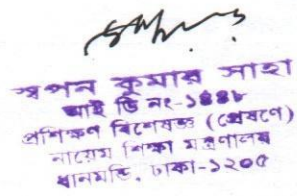 স্বপন কুমার সাহা
আই ডি নং-১৪৪৮
প্রশিক্ষণ বিশেষজ্ঞ (প্রেষণে)
নায়েম শিক্ষা মন্ত্রণালয়
ধানমন্ডি, ঢাকা-১২০৫